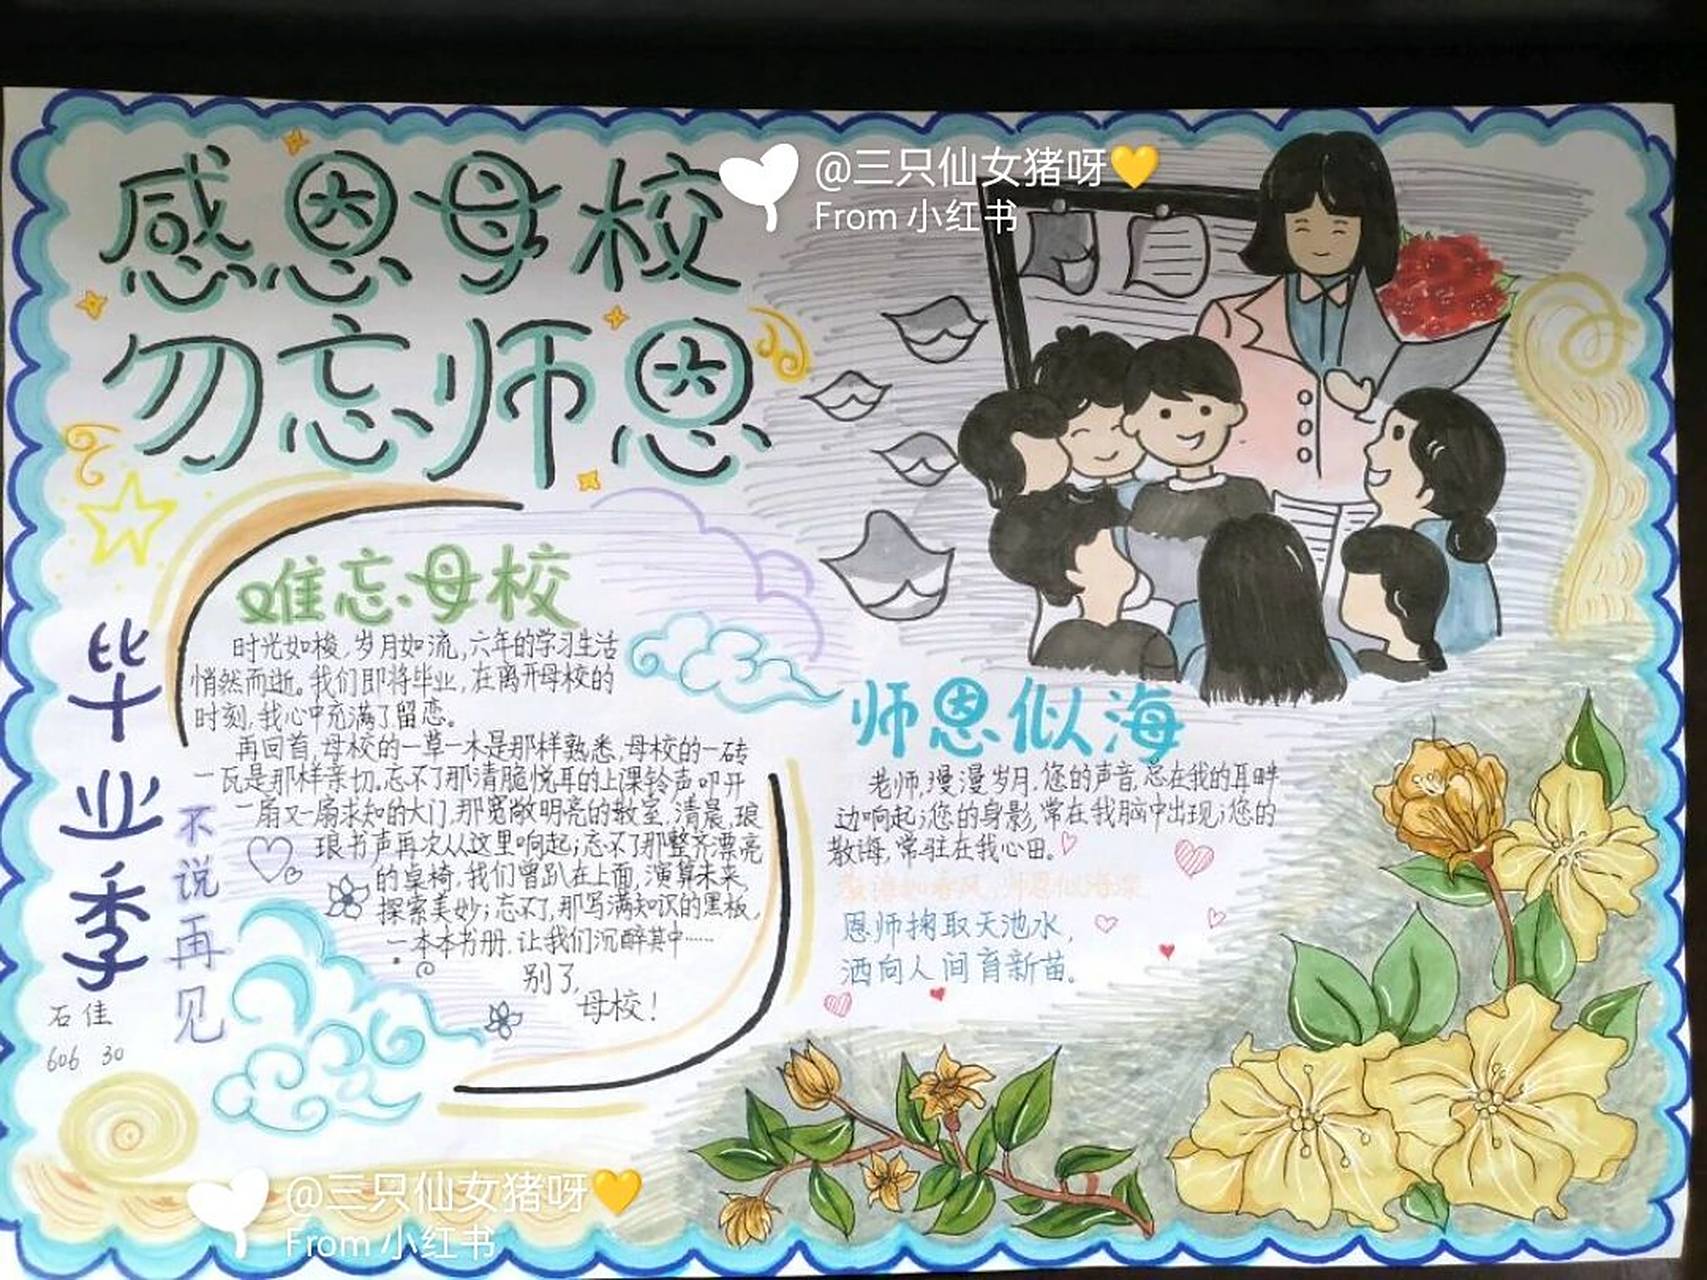 感恩母校
勿忘师恩
@三只仙女猪呀
From 小红书
难忘母校
时光如梭,岁月如流,六年的学习生活
悄然而逝。我们即将毕业,在离开母校的
时刻,我心中充满了留恋。
再回首,母校的一草一木是那样熟悉,母校的一砖
一瓦是那样亲切,忘不了那清脆悦耳的上课铃声叩开
一扇又一扇求知的大门,那宽敞明亮的教室,清晨,琅
琅书声再次从这里响起;忘不了那整齐漂亮
的桌椅,我们曾趴在上面,演算未来,
探索美妙;忘不了,那写满知识的黑板,
一本本书册,让我们沉醉其中……
别了,
母校!
毕业季
不说再见
石佳
606 30
师恩似海
老师,漫漫岁月,您的声音,总在我的耳畔
边响起;您的身影,常在我脑中出现;您的
教诲,常驻在我心田。
教诲如春风,师恩似海深
恩师掬取天池水,
洒向人间育新苗。
@三只仙女猪呀
From 小红书